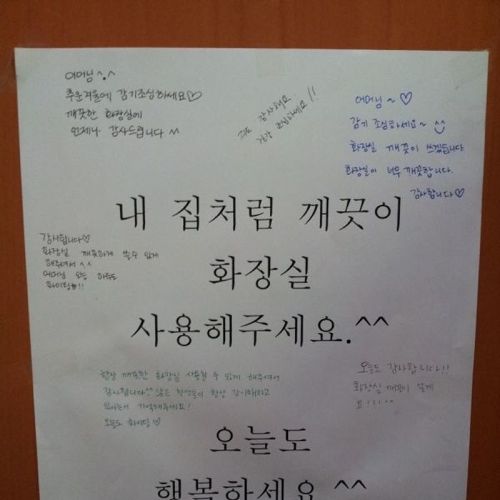 어머님 ^.^
추운겨울에 감기조심하세요♡
깨끗한 화장실에
언제나 감사드립니다 ^^
감사해요
감기 조심하세요!!
어머님~♡
감기 조심하세요~
화장실 깨끗이 쓰겠습니다
화장실이 너무 깨끗합니다.
감사합니다♡
내 집처럼 깨끗이
화장실
사용해주세요.^^
감사합니다♡
화장실 깨끗하게 쓸수 있게
해주셔서 ^^
어머님 오늘 하루도
화이팅!!!
항상 깨끗한 화장실 사용할 수 있게 해주셔서
감사합니다^^ 많은 학생들이 항상 감사해하고
있다는거 기억해주세요!
오늘도 화이팅♡
오늘도 감사합니다!!
화장실 깨끗이 쓸게
요!!!^^
오늘도
행복하세요.^^